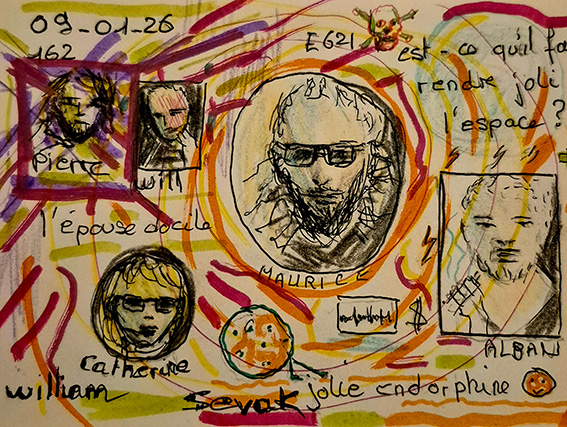 09-01-26
162
E621
est-ce qu'il fa
rendre joli
l'espace ?
Pierre
will
l'épouse docile
MAURICE
ALBAN
Catherine
william
Sevak
jolie endorphine
$